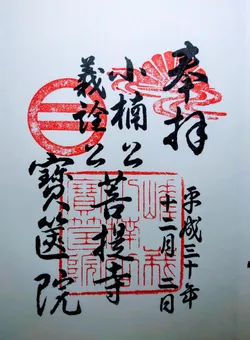 奉拝
小楠公
義詮公
菩提寺
寳篋院
平成三十年
十二月二日